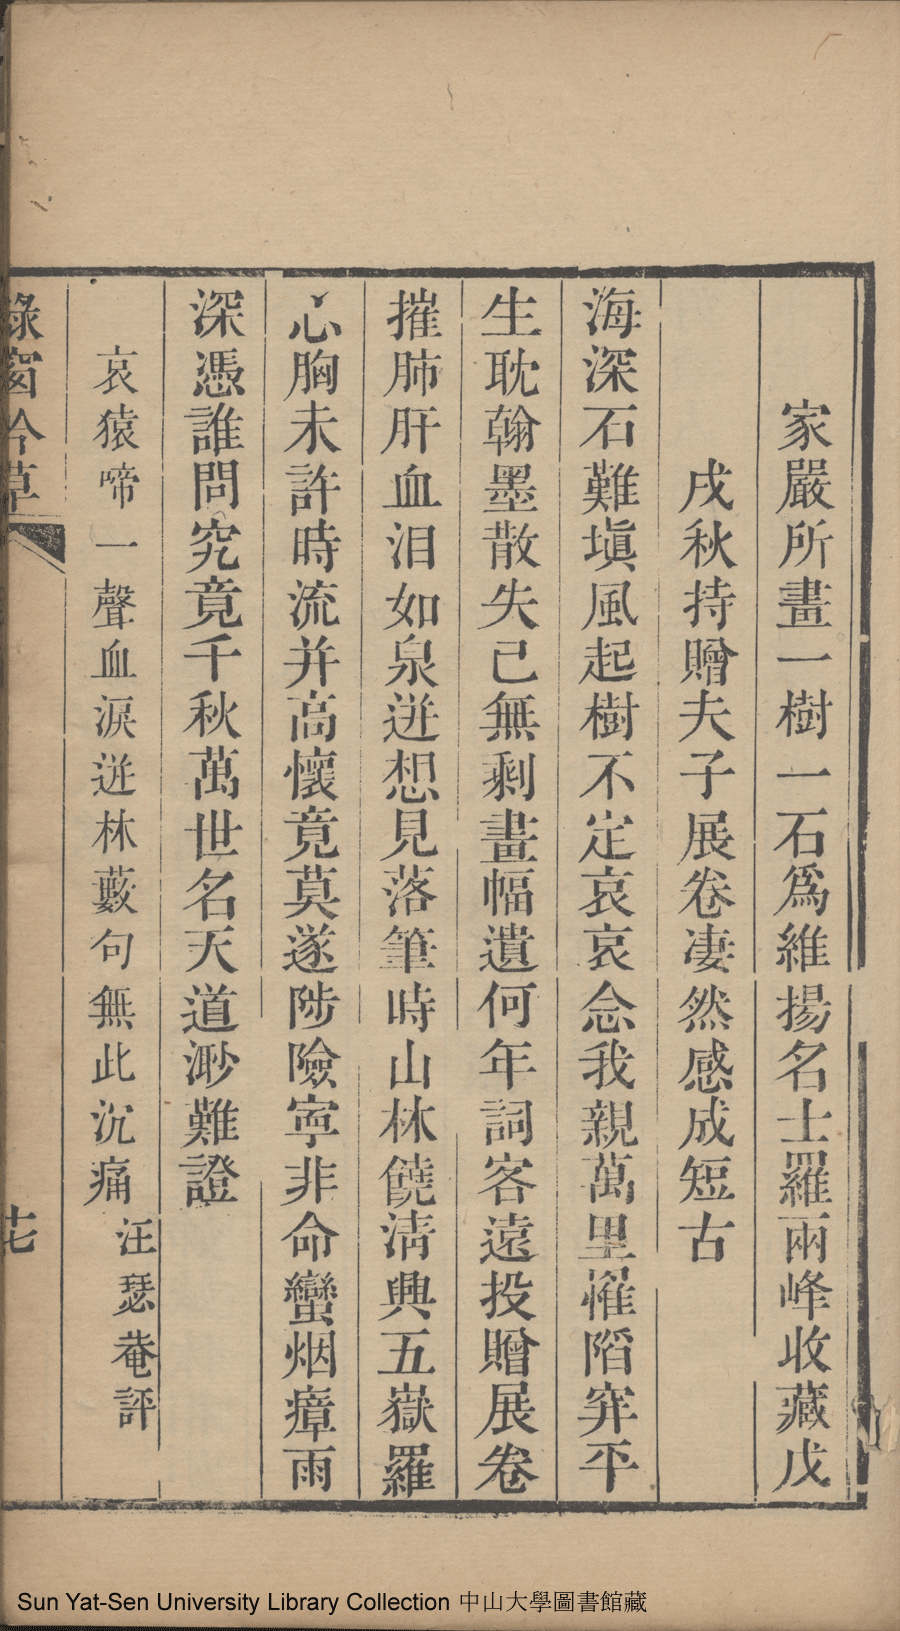 家嚴所畫一樹一石爲維揚名士羅兩峰收藏戊
戌秋持贈夫子展卷凄然感成短古
海深石難塡風起樹不定哀哀念我親萬里罹陷穽平
生耽翰墨散失已無剩畫幅遺何年詞客遠投贈展卷
摧肺肝血泪如泉迸想見落筆時山林饒淸興五嶽羅
心胸未許時流并高懷竟莫遂陟險寧非命蠻烟瘴雨
深憑誰問究竟千秋萬世名天道渺難證
哀猿啼一聲血淚迸林藪句無此沉痛 汪瑟菴評
綠窗吟草 十七
Sun Yat-Sen University Library Collection 中山大學圖書館藏